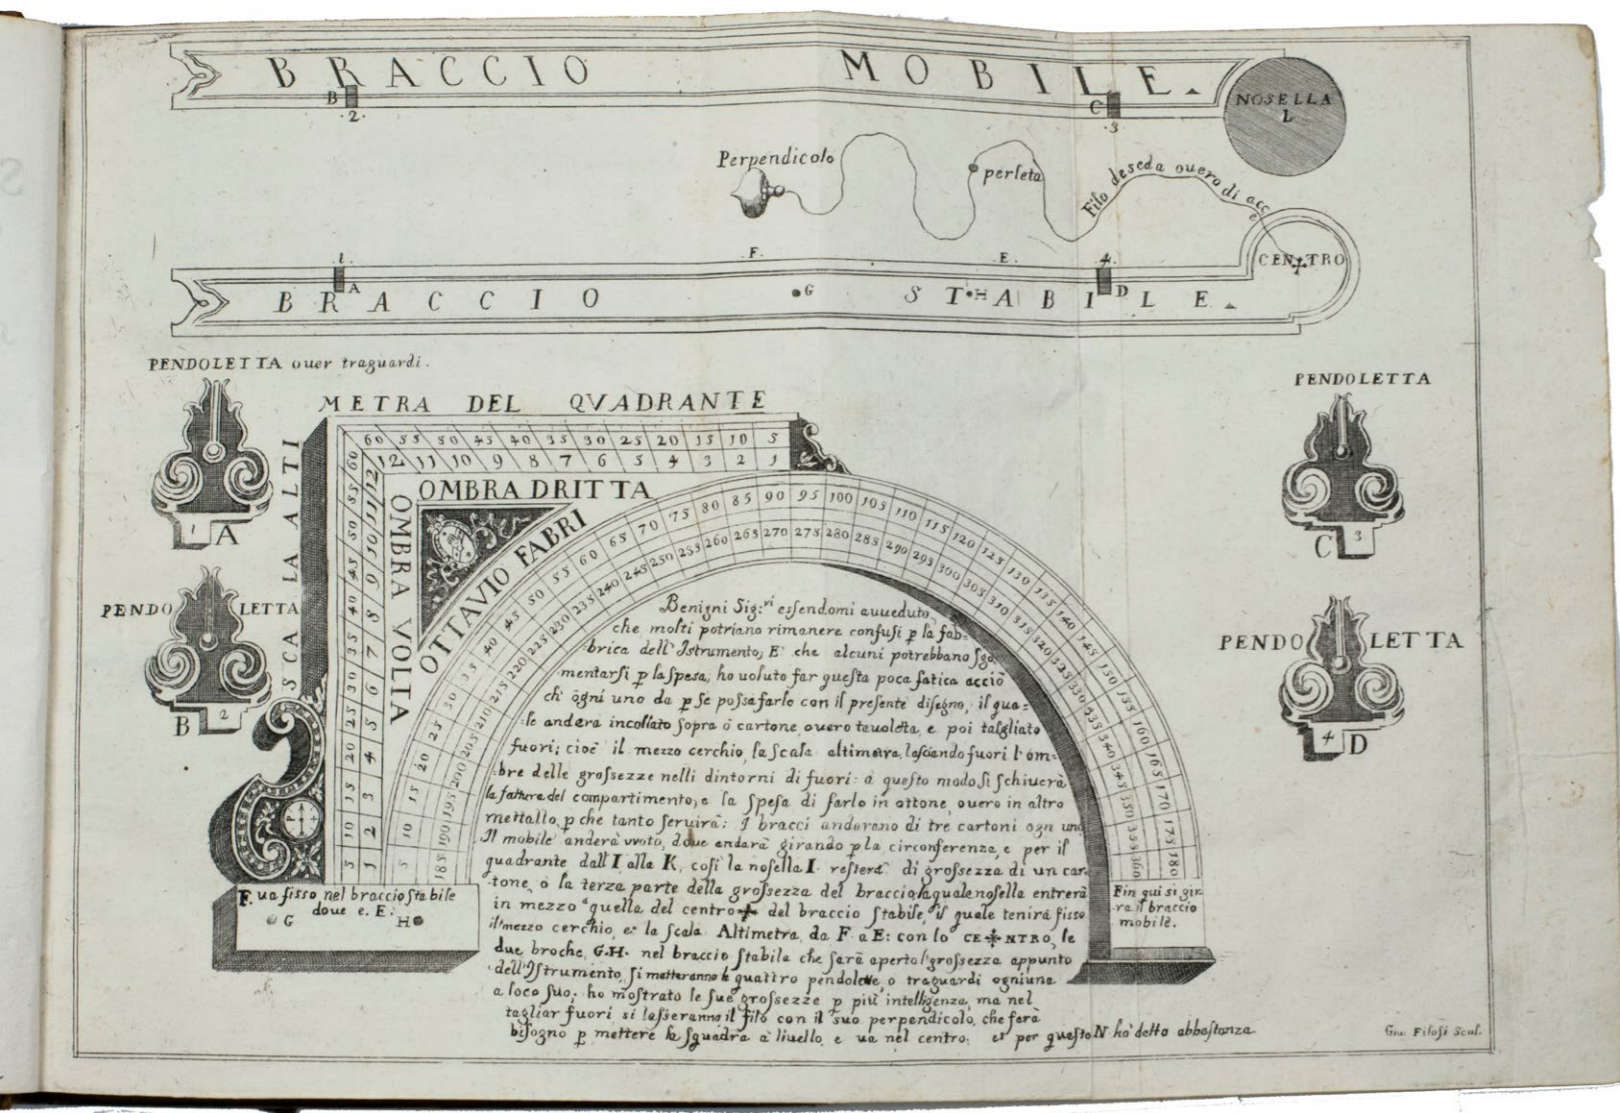 BRACCIO MOBILE.
NOSELLA
L
B
.2.
C
.3
Perpendicolo
perleta
Filo deseda ouero di acc
e
.1.
F.
.E.
.4.
CEN✢TRO
A
G
H
D
BRACCIO STABILE.
PENDOLETTA ouer traguardi.
PENDOLETTA
METRA DEL QVADRANTE
60 55 50 45 40 35 30 25 20 15 10 5
12 11 10 9 8 7 6 5 4 3 2 1
OMBRA DRITTA
SCALA ALTI
60 55 50 45 40 35 30 25 20 15 10 5
12 11 10 9 8 7 6 5 4 3 2 1
OMBRA VOLTA
OTTAVIO FABRI
1 A
3
C
PENDOLETTA
B 2
PENDOLETTA
4 D
5 10 15 20 25 30 35 40 45 50 55 60 65 70 75 80 85 90 95 100 105 110 115 120 125 130 135 140 145 150 155 160 165 170 175 180
185 190 195 200 205 210 215 220 225 230 235 240 245 250 255 260 265 270 275 280 285 290 295 300 305 310 315 320 325 330 335 340 345 350 355 360
Benigni Sig:ri essendomi auueduto,
che molti potriano rimanere confusi p la fab=
brica dell'Istrumento; E' che alcuni potrebbano sgo
mentarsi p la spesa; ho uoluto far questa poca fatica acciò
ch' ogni uno da p se possa farlo con il presente disegno, il qua=
le andera incollato sopra ò cartone ouero tauoletta, e poi talgliato
fuori; cioè il mezzo cerchio, la scala altimetra, lasciando fuori l'om=
bre delle grossezze nelli dintorni di fuori: a questo modo si schiuerà
la fattura del compartimento, e la spesa di farlo in ottone ouero in altro
mettallo p che tanto seruirà: I bracci anderano di tre cartoni ogn uno
Il mobile anderà vvoto, doue andarà girando p la circonferenza, e per il
quadrante dall'I alla K, così la nosella I. resterà di grossezza di un car
tone, ò la terza parte della grossezza del braccio, la quale nosella entrerà
in mezzo a quella del centro ✢ del braccio stabile, il quale tenirà fisso
il mezzo cerchio, et la scala Altimetra, da F a E: con lo CE✢NTRO, le
due broche, G.H. nel braccio stabile che sarà aperto l'grossezza appunto
dell'Istrumento, si metteranno le quattro pendolette, o traguardi ogniuna
a loco suo; ho mostrato le sue grossezze p più intelligenza, ma nel
tagliar fuori si lasseranno il filo con il suo perpendicolo, che ferà
bisogno p mettere la squadra à liuello, e ua nel centro: et per questo N ho detto abbastanza
F. ua fisso nel braccio stabile
doue e. E:
G H
Fin qui si gir
ra il braccio
mobile.
Gio: Filosi Scul.